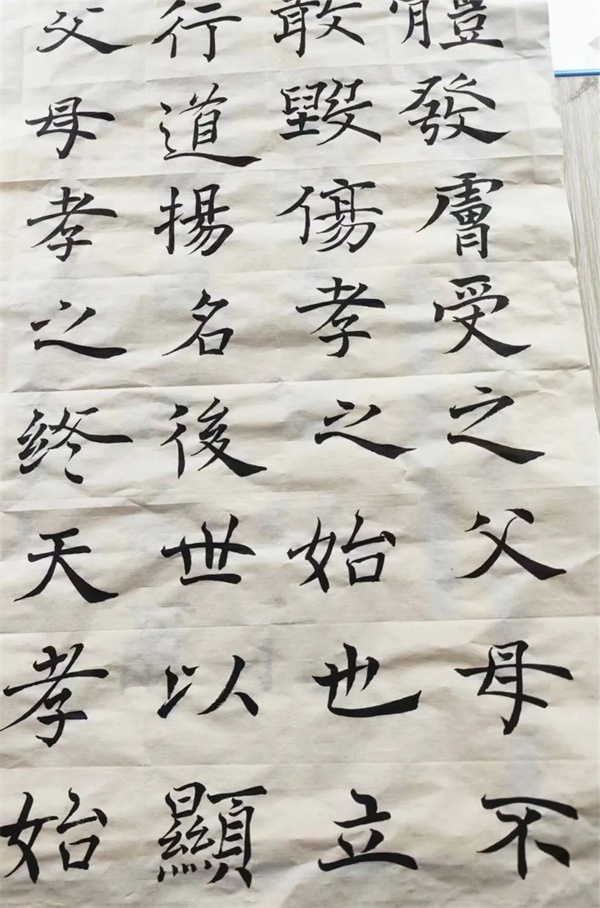 體發膚受之父母不
敢毀傷孝之始也立
行道揚名後世以顯
父母孝之終天孝始